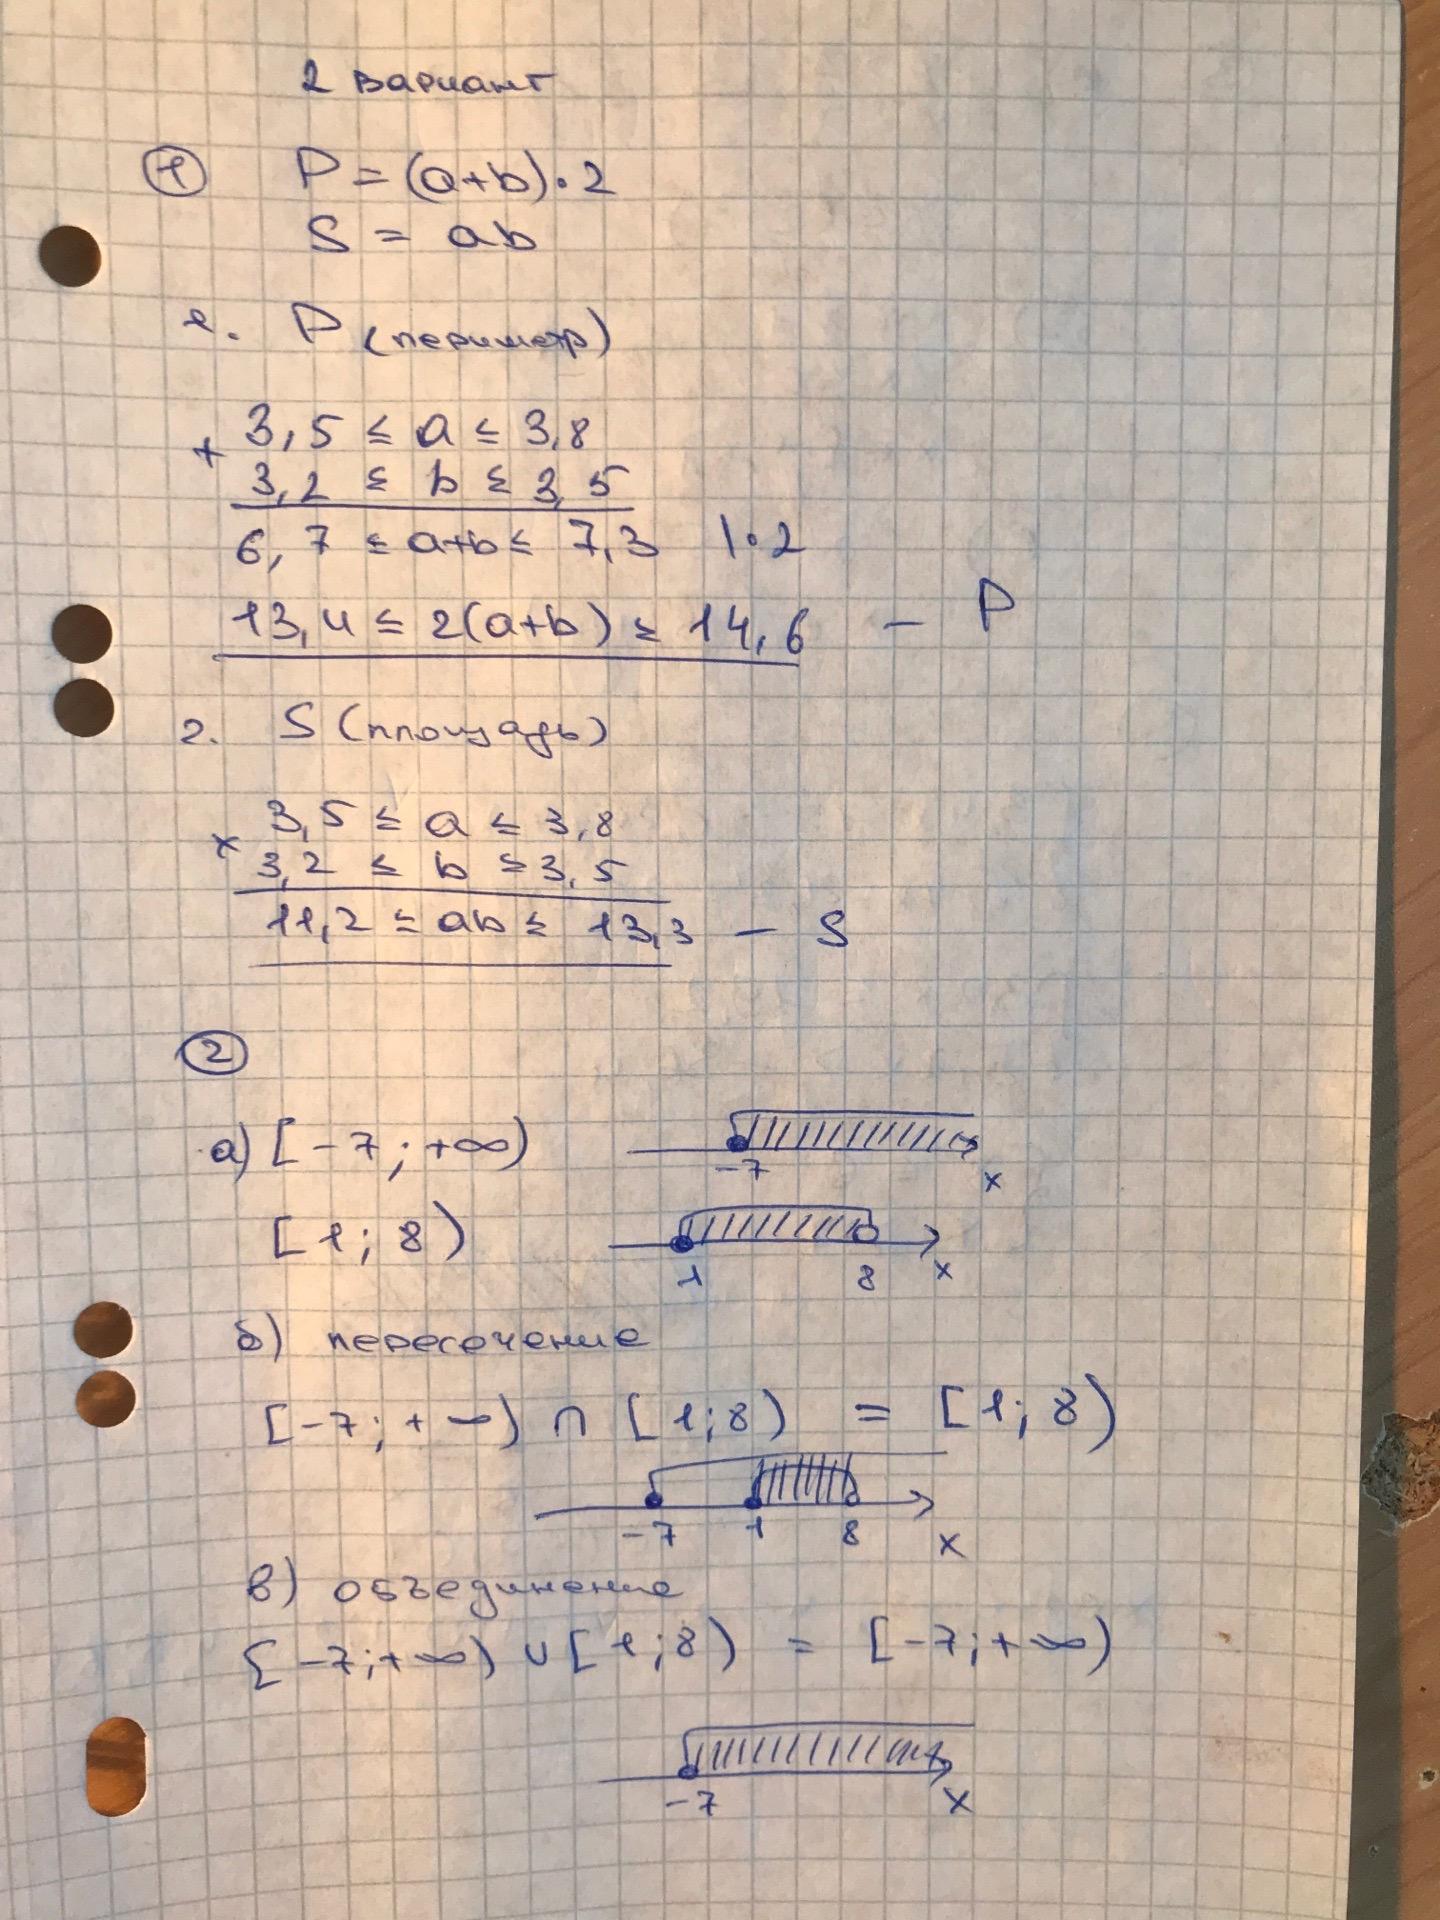 2 вариант
1 P = (a+b)·2
S = ab
1. P (периметр)
+ 3,5 ≤ a ≤ 3,8
3,2 ≤ b ≤ 3,5
6,7 ≤ a+b ≤ 7,3 |·2
13,4 ≤ 2(a+b) ≤ 14,6 – P
2. S (площадь)
× 3,5 ≤ a ≤ 3,8
3,2 ≤ b ≤ 3,5
11,2 ≤ ab ≤ 13,3 – S
2
а) [-7; +∞)
-7 x
[1; 8)
1 8 x
б) пересечение
[-7; +∞) ∩ [1; 8) = [1; 8)
-7 1 8 x
в) объединение
[-7; +∞) ∪ [1; 8) = [-7; +∞)
-7 x